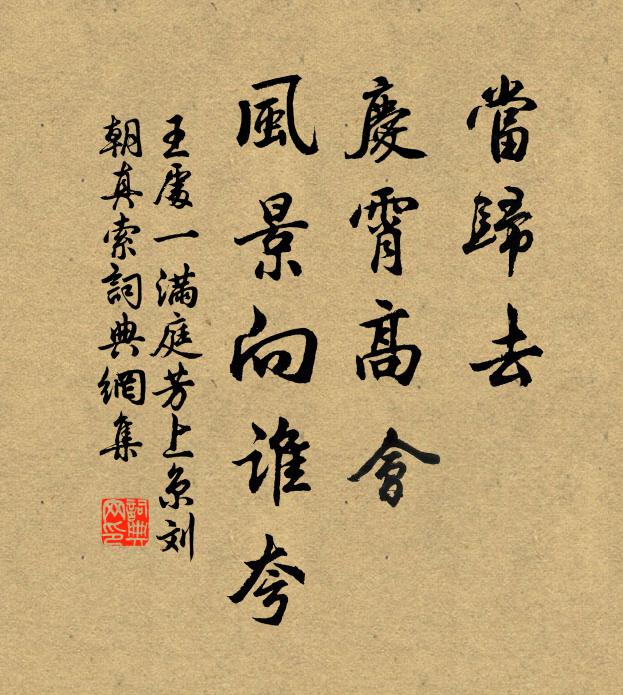 當歸去
慶霄高會
風景向誰夸
王處一滿庭芳上京刘
朝真索詞典網集
詞典
网印